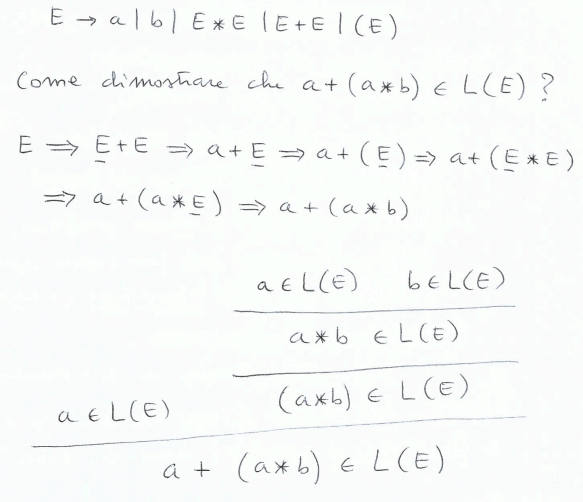 E → a | b | E * E | E + E | (E)
Come dimostrare che a + (a * b) ∈ L(E) ?
E ⇒ E + E ⇒ a + E ⇒ a + (E) ⇒ a + (E * E)
⇒ a + (a * E) ⇒ a + (a * b)
a ∈ L(E) b ∈ L(E)
a * b ∈ L(E)
a ∈ L(E) (a * b) ∈ L(E)
a + (a * b) ∈ L(E)